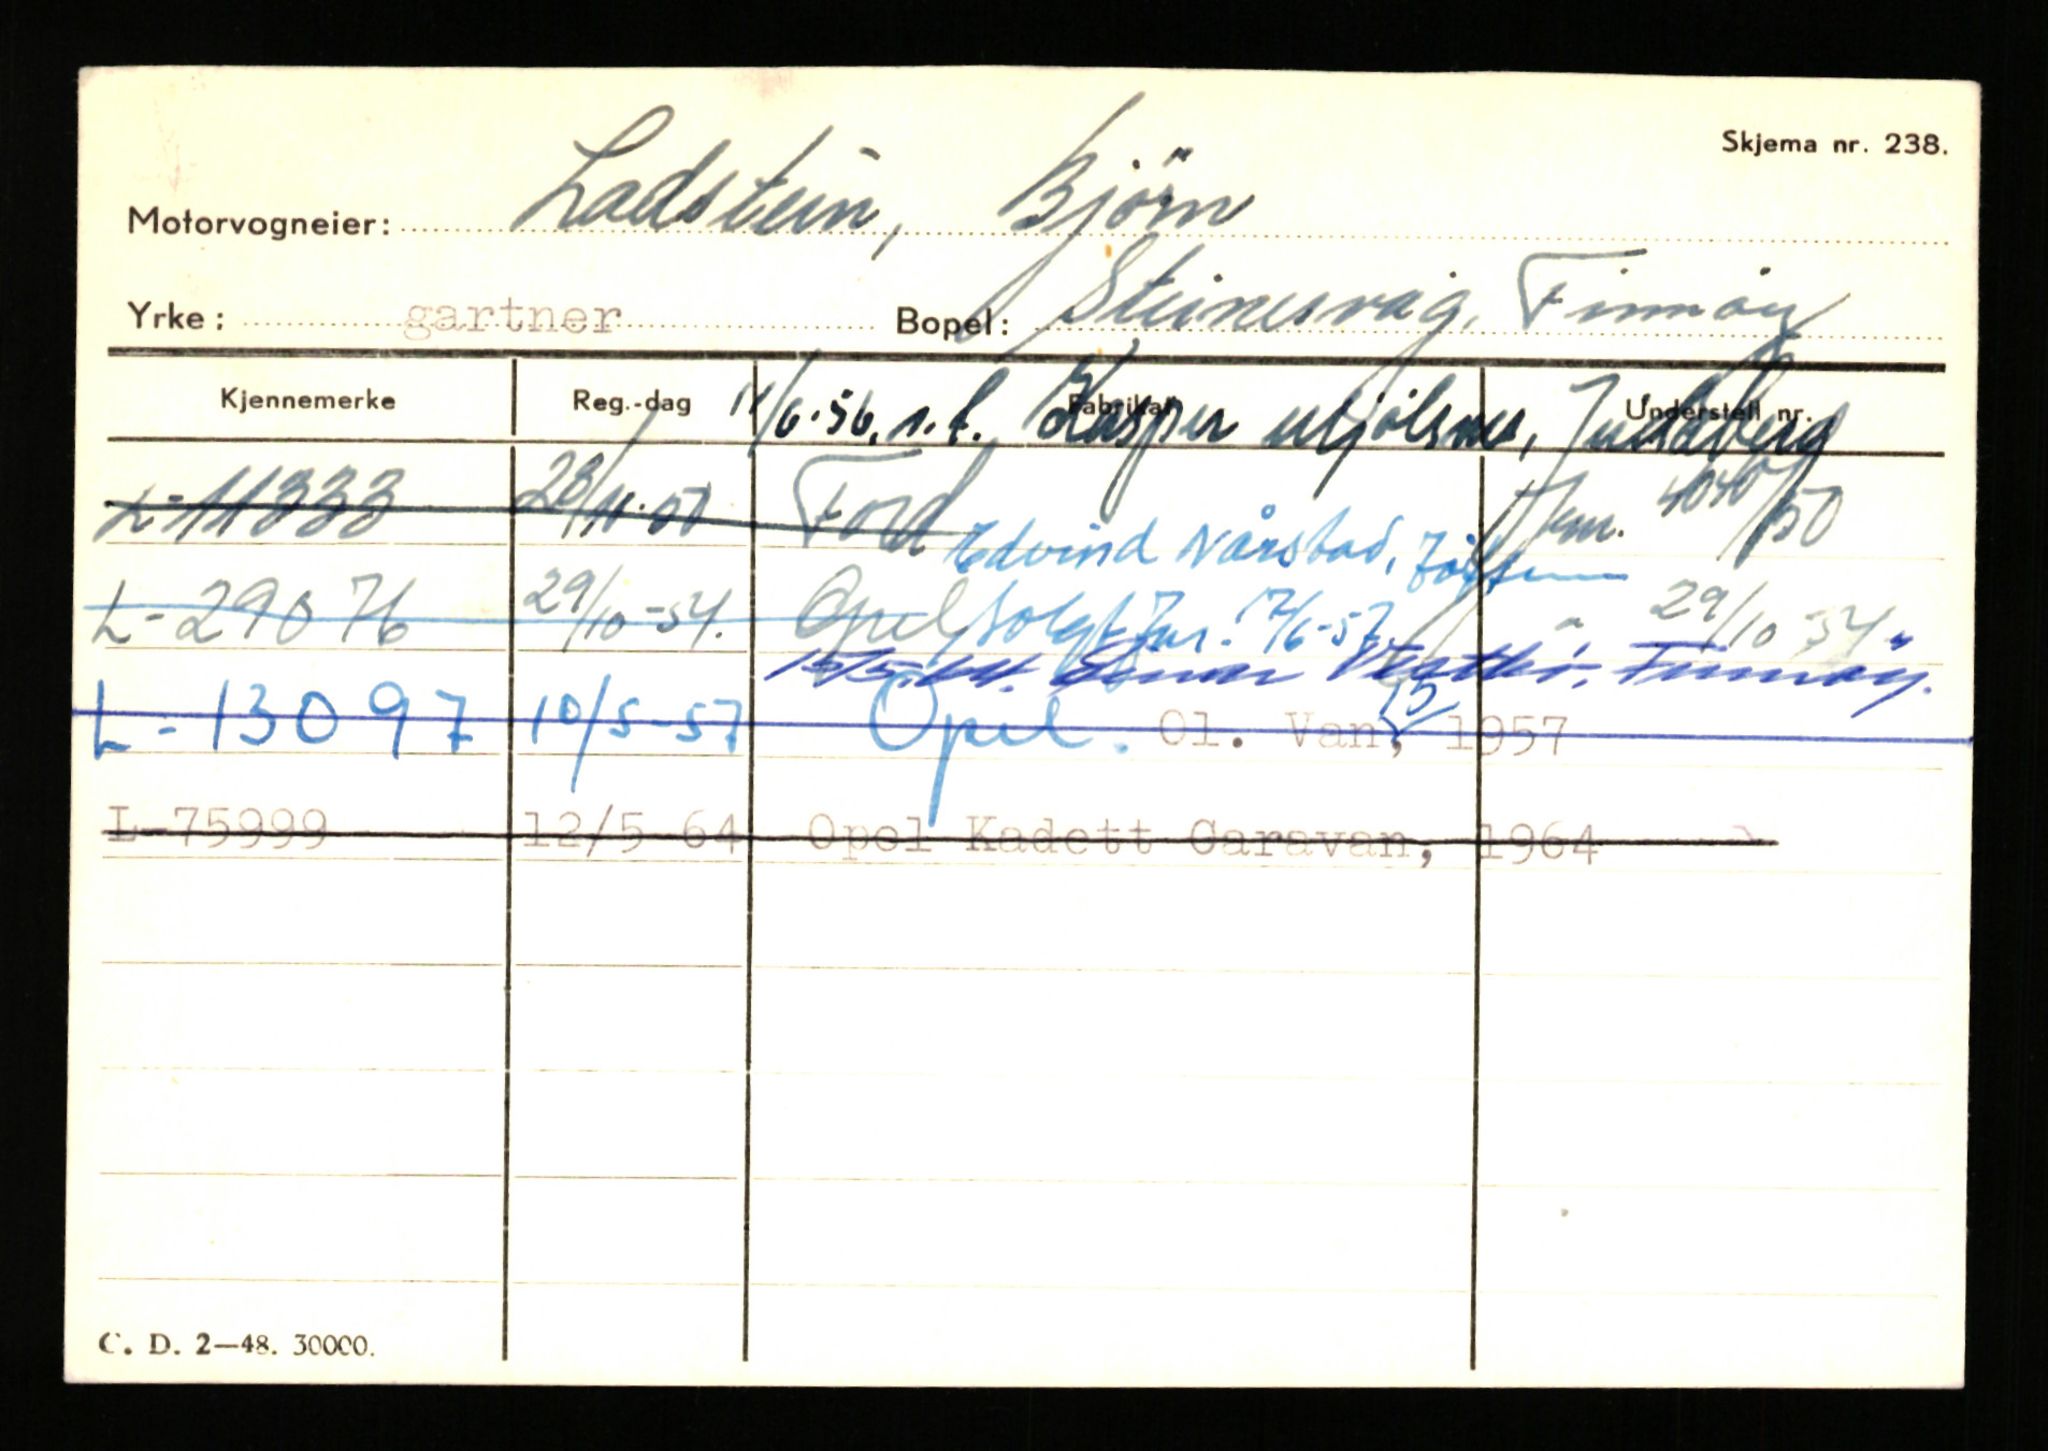 Skjema nr. 238.
Motorvogneier: Ladstein, Björn
Yrke: gartner Bopel: Steinesvåg, Finnöy
Kjennemerke Reg.-dag Fabrikat Understell nr.
11/6-56. n.f. Kasper Mjölsnes, Judaberg
L-11333 Ford 4040/50
Edvind Nårstad,
L-29076 29/10-54. Opel 29/10-54
Solgt 17/6-57
15/5.64. Vestbö, Finnöy.
L-13097 10/5-57 Opel. Ol. Van, 1957
15/
L-75999 12/5 64 Opel Kadett Caravan, 1964
C. D. 2—48. 30000.